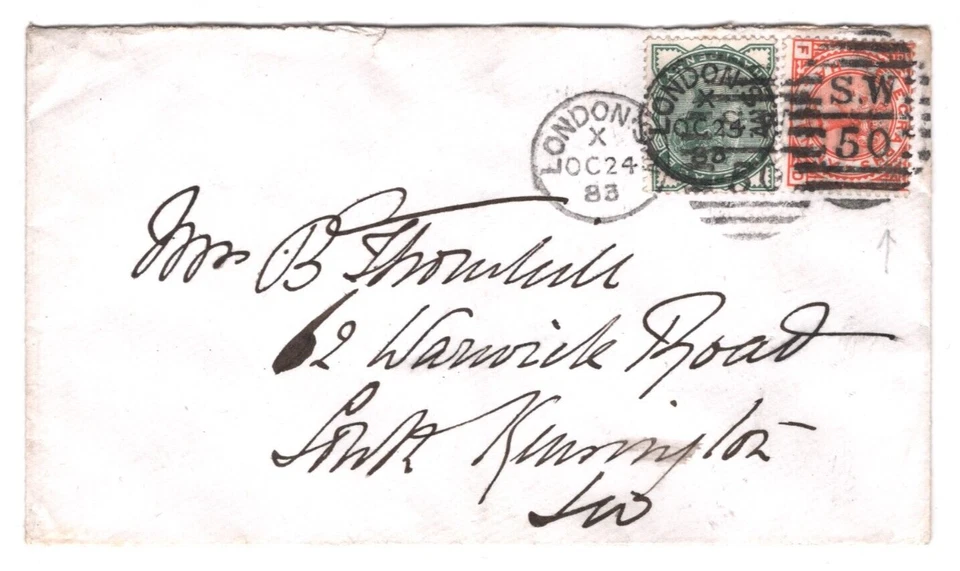 LONDON
X
OC 24
83
LONDON S.W
X
OC 24
83
S.W
50
Mrs B Thornhill
62 Warwick Road
South Kensington
SW